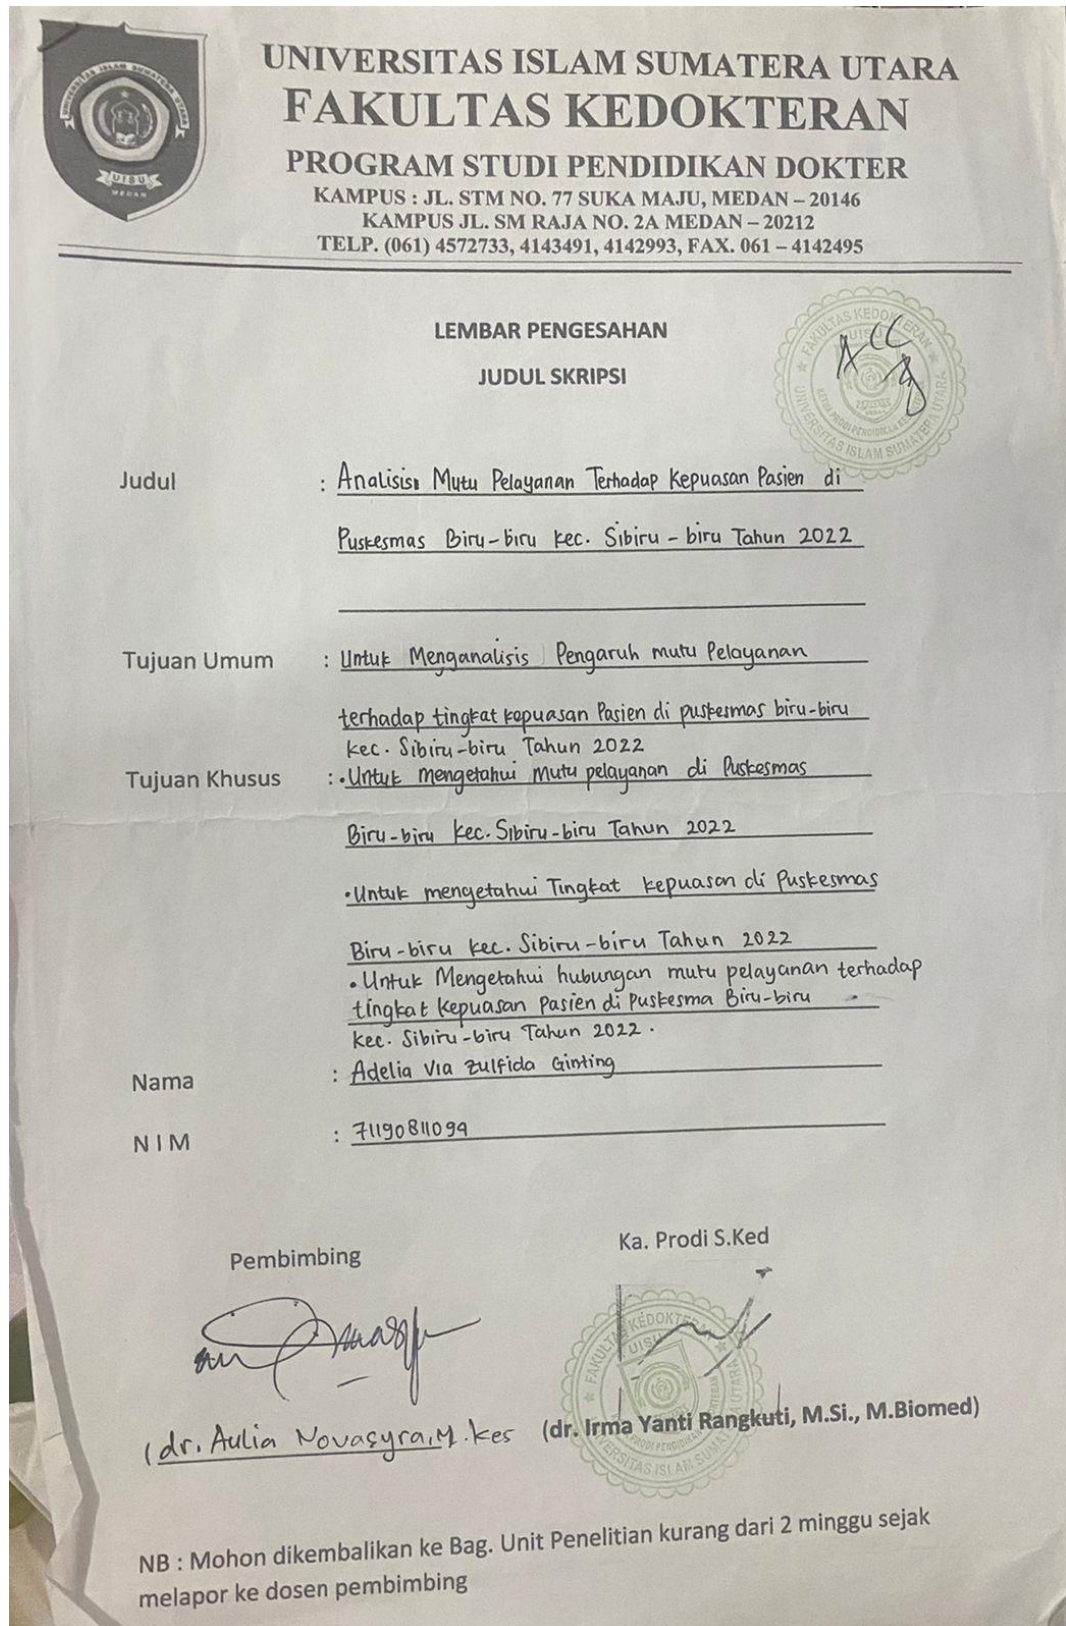 UNIVERSITAS ISLAM SUMATERA UTARA
FAKULTAS KEDOKTERAN
PROGRAM STUDI PENDIDIKAN DOKTER
KAMPUS : JL. STM NO. 77 SUKA MAJU, MEDAN – 20146
KAMPUS JL. SM RAJA NO. 2A MEDAN – 20212
TELP. (061) 4572733, 4143491, 4142993, FAX. 061 – 4142495
UNIVERSITAS ISLAM SUMATERA UTARA
UISU
MEDAN
LEMBAR PENGESAHAN
JUDUL SKRIPSI
ACC
FAKULTAS KEDOKTERAN
UISU
UNIVERSITAS ISLAM SUMATERA UTARA
Judul : Analisis Mutu Pelayanan Terhadap Kepuasan Pasien di
Puskesmas Biru-biru kec. Sibiru-biru Tahun 2022
Tujuan Umum : Untuk Menganalisis Pengaruh mutu Pelayanan
terhadap tingkat kepuasan Pasien di puskesmas biru-biru
kec. Sibiru-biru Tahun 2022
Tujuan Khusus : • Untuk mengetahui Mutu pelayanan di Puskesmas
Biru-biru kec. Sibiru-biru Tahun 2022
• Untuk mengetahui Tingkat kepuasan di Puskesmas
Biru-biru kec. Sibiru-biru Tahun 2022
• Untuk Mengetahui hubungan mutu pelayanan terhadap
tingkat kepuasan Pasien di Puskesma Biru-biru
kec. Sibiru-biru Tahun 2022.
Nama : Adelia Via Zulfida Ginting
NIM : 71190811094
Pembimbing
Ka. Prodi S.Ked
FAKULTAS KEDOKTERAN
UISU
(dr. Aulia Novasyra, M.kes
(dr. Irma Yanti Rangkuti, M.Si., M.Biomed)
NB : Mohon dikembalikan ke Bag. Unit Penelitian kurang dari 2 minggu sejak
melapor ke dosen pembimbing